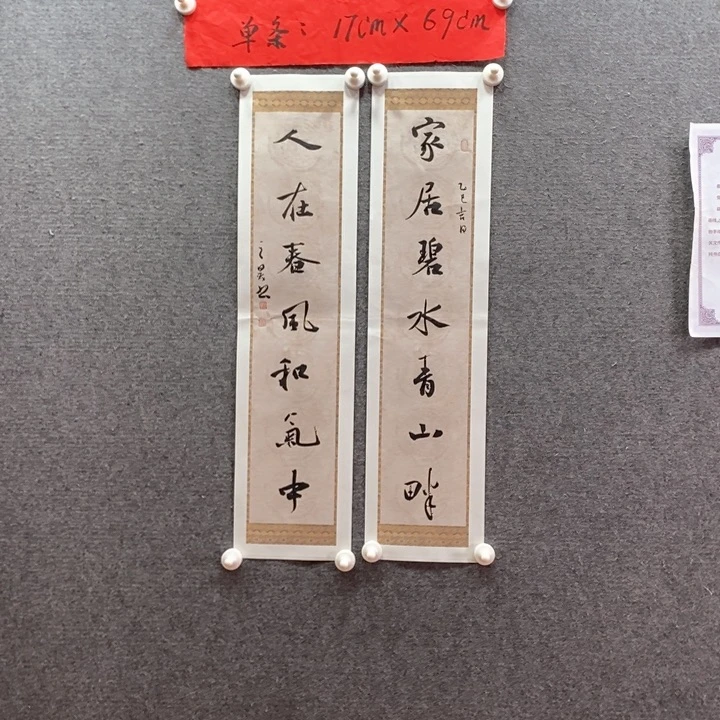 单条：17cm×69cm
家居碧水青山畔
乙巳六月
人在春风和氣中